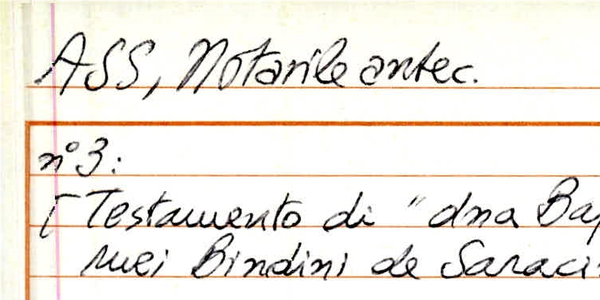 ASS, Notarile antec.
n° 3:
[Testamento di "dna Bap
Mei Bindini de Saraci